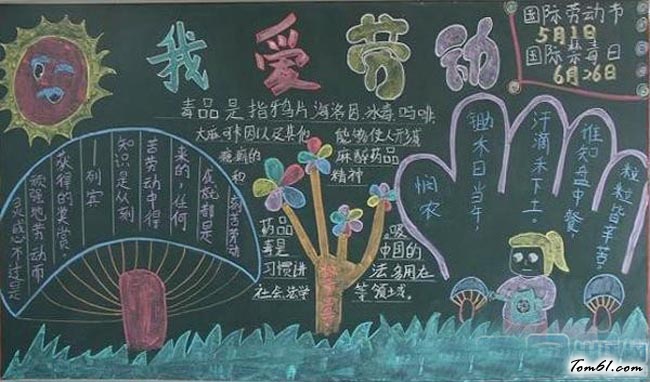 我爱劳动
国际劳动节
5月1日
国际禁毒日
6月26日
毒品是指鸦片、海洛因、冰毒、吗啡
大麻可卡因以及其他 能够使人形成
瘾癖的 麻醉药品
和 精神
药品 。吸
毒是 中国的
习惯讲 法多用在
社会法学 等领域。
灵感不过是
顽强地劳动而
获得的奖赏。
—列宾
知识是从刻
苦劳动中得
来的,任何
成就都是
刻苦劳动
悯农
锄木日当午,
汗滴禾下土。
谁知盘中餐,
粒粒皆辛苦。
Tom61.com